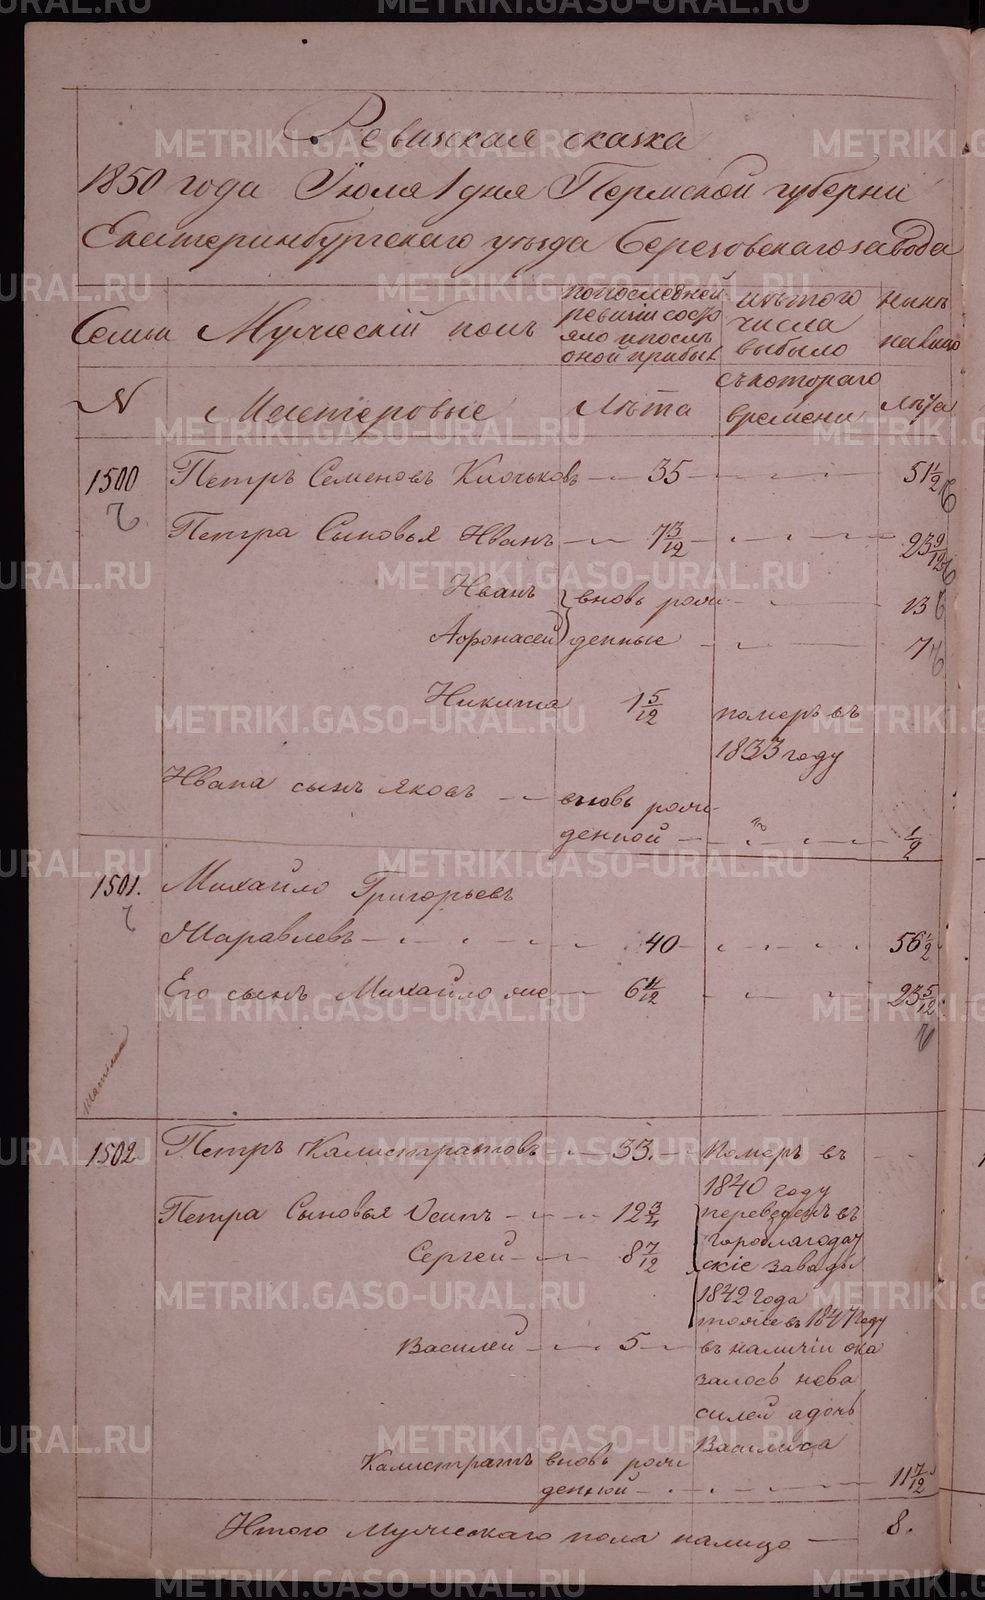 Ревизская сказка
1850 года Июля 1 дня Пермской губерни
Екатеринбургскаго уезда Березовскаго завода
Семьи
Мужескій полъ
по последней ревизіи состояло и после оной прибыл
изъ того числа выбыло
ныне на лицо
N
Мастеровые
Лѣта
съ котораго времени
лѣта
1500 Петръ Семеновъ Клочьковъ 35 51 1/2
Петра Сыновья Иванъ 7 3/12 23 9/12
Иванъ вновь рож 13
Афонасей денные 7
Никита 1 5/12 померъ въ
1833 году
Ивана сынъ Яковъ вновь рож
денной 1/2
1501. Михайло Григорьевъ
Журавлевъ 40 56 1/2
Его сынъ Михайло же 6 11/12 23 5/12
1502 Петръ Калистратовъ 33. Померъ въ
1840 году
Петра Сыновья Осипъ 12 3/4 переведенъ въ
Гороблагодат
Сергей 8 7/12 скіе заводы
1842 года
тоже въ 1847 году
Василей 5 въ наличіи ока
залось нева
силей а дочь
Василиса
Калистратъ вновь рож
денной 11 7/12
Итого Мужескаго пола налицо 8.
METRIKI.GASO-URAL.RU